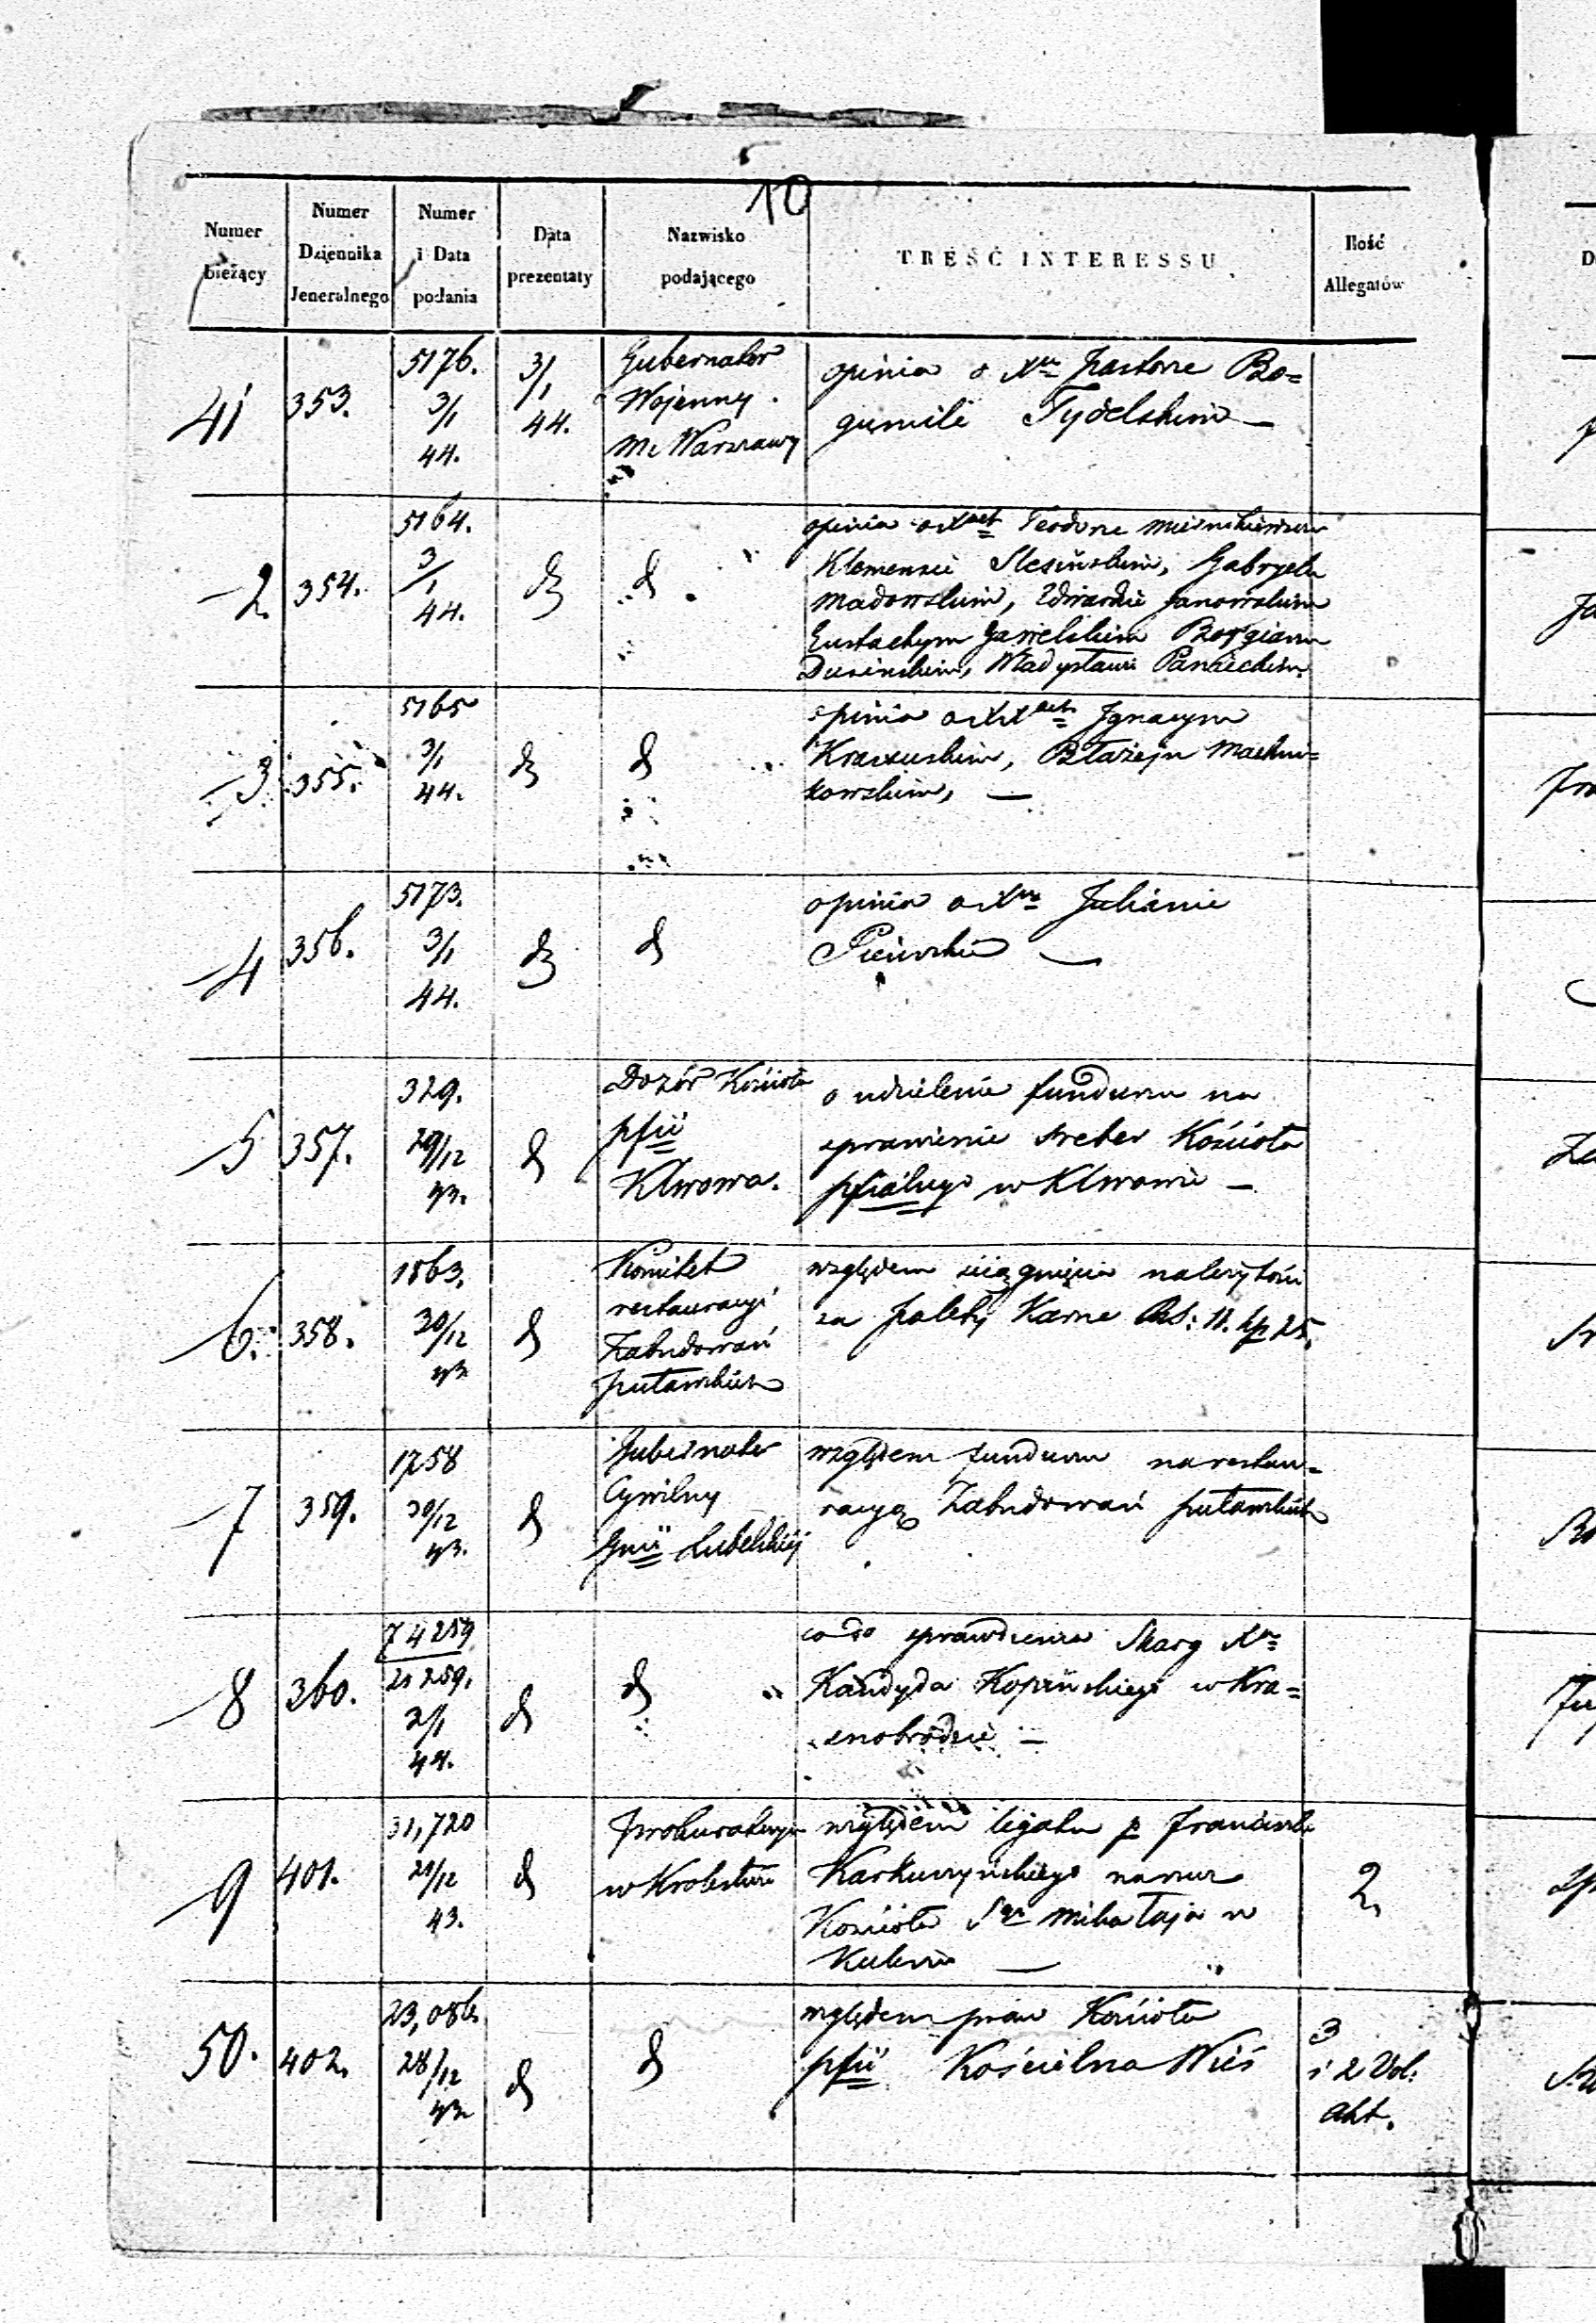 10
Numer bieżący
Numer Dziennika Jeneralnego
Numer i Data podania
Data prezentaty
Nazwisko podającego
TREŚĆ INTERESSU
Ilość Allegatów
41
353.
5176.
3/1
44.
3/1
44.
Gubernator
Wojenny
M. Warszawy
opinia o Xu Pastorze Bo=
gumile Tydelskim —
2
354.
5164.
3/1
44.
d
d
opinia o Teodorze
Klemensie Slesińskim, Gabryelu
Madowskim, Edwardzie Janowskim
Eustachym Gawelskim
Dusińskim, Władysławie
3
355.
5165
3/1
44.
d
d
opinia o Ignacym
Błażeju Machni=
kowskim, —
4
356.
5173.
3/1
44.
d
d
opinia o Xu Julianie
—
5
357.
329.
29/12
43.
d
Dozór Kościoła
pfii
Klwowa.
o udzielenie funduszu na
sprawienie sreber Kościoła
pfialnego w Klwowie —
6.
358.
1863.
30/12
43
d
Komitet
restauracyi
Zabudowań
puławskich
względem ściągnięcia należytości
za palety Karne Rs: 11. kp 25.
7
359.
1758
30/12
43.
d
Gubernator
Cywilny
Gnii Lubelskiej
względem funduszu na restau=
racyą Zabudowań puławskich
8
360.
74259
21259.
2/1
44.
d
d
co do sprawdzenia Skarg Xa
Kandyda Kopińskiego w Kra=
snobrodzie —
9
401.
31,720
21/12
43.
d
Prokuratorya
w Królestwie
względem legatu p Franciszka
na rzecz
Kościoła Sgo Mikołaja w
—
2
50.
402.
23,086.
28/12
43.
d
d
względem praw Kościoła
pfii Kościelna Wieś
3
i 2 Vol:
akt.